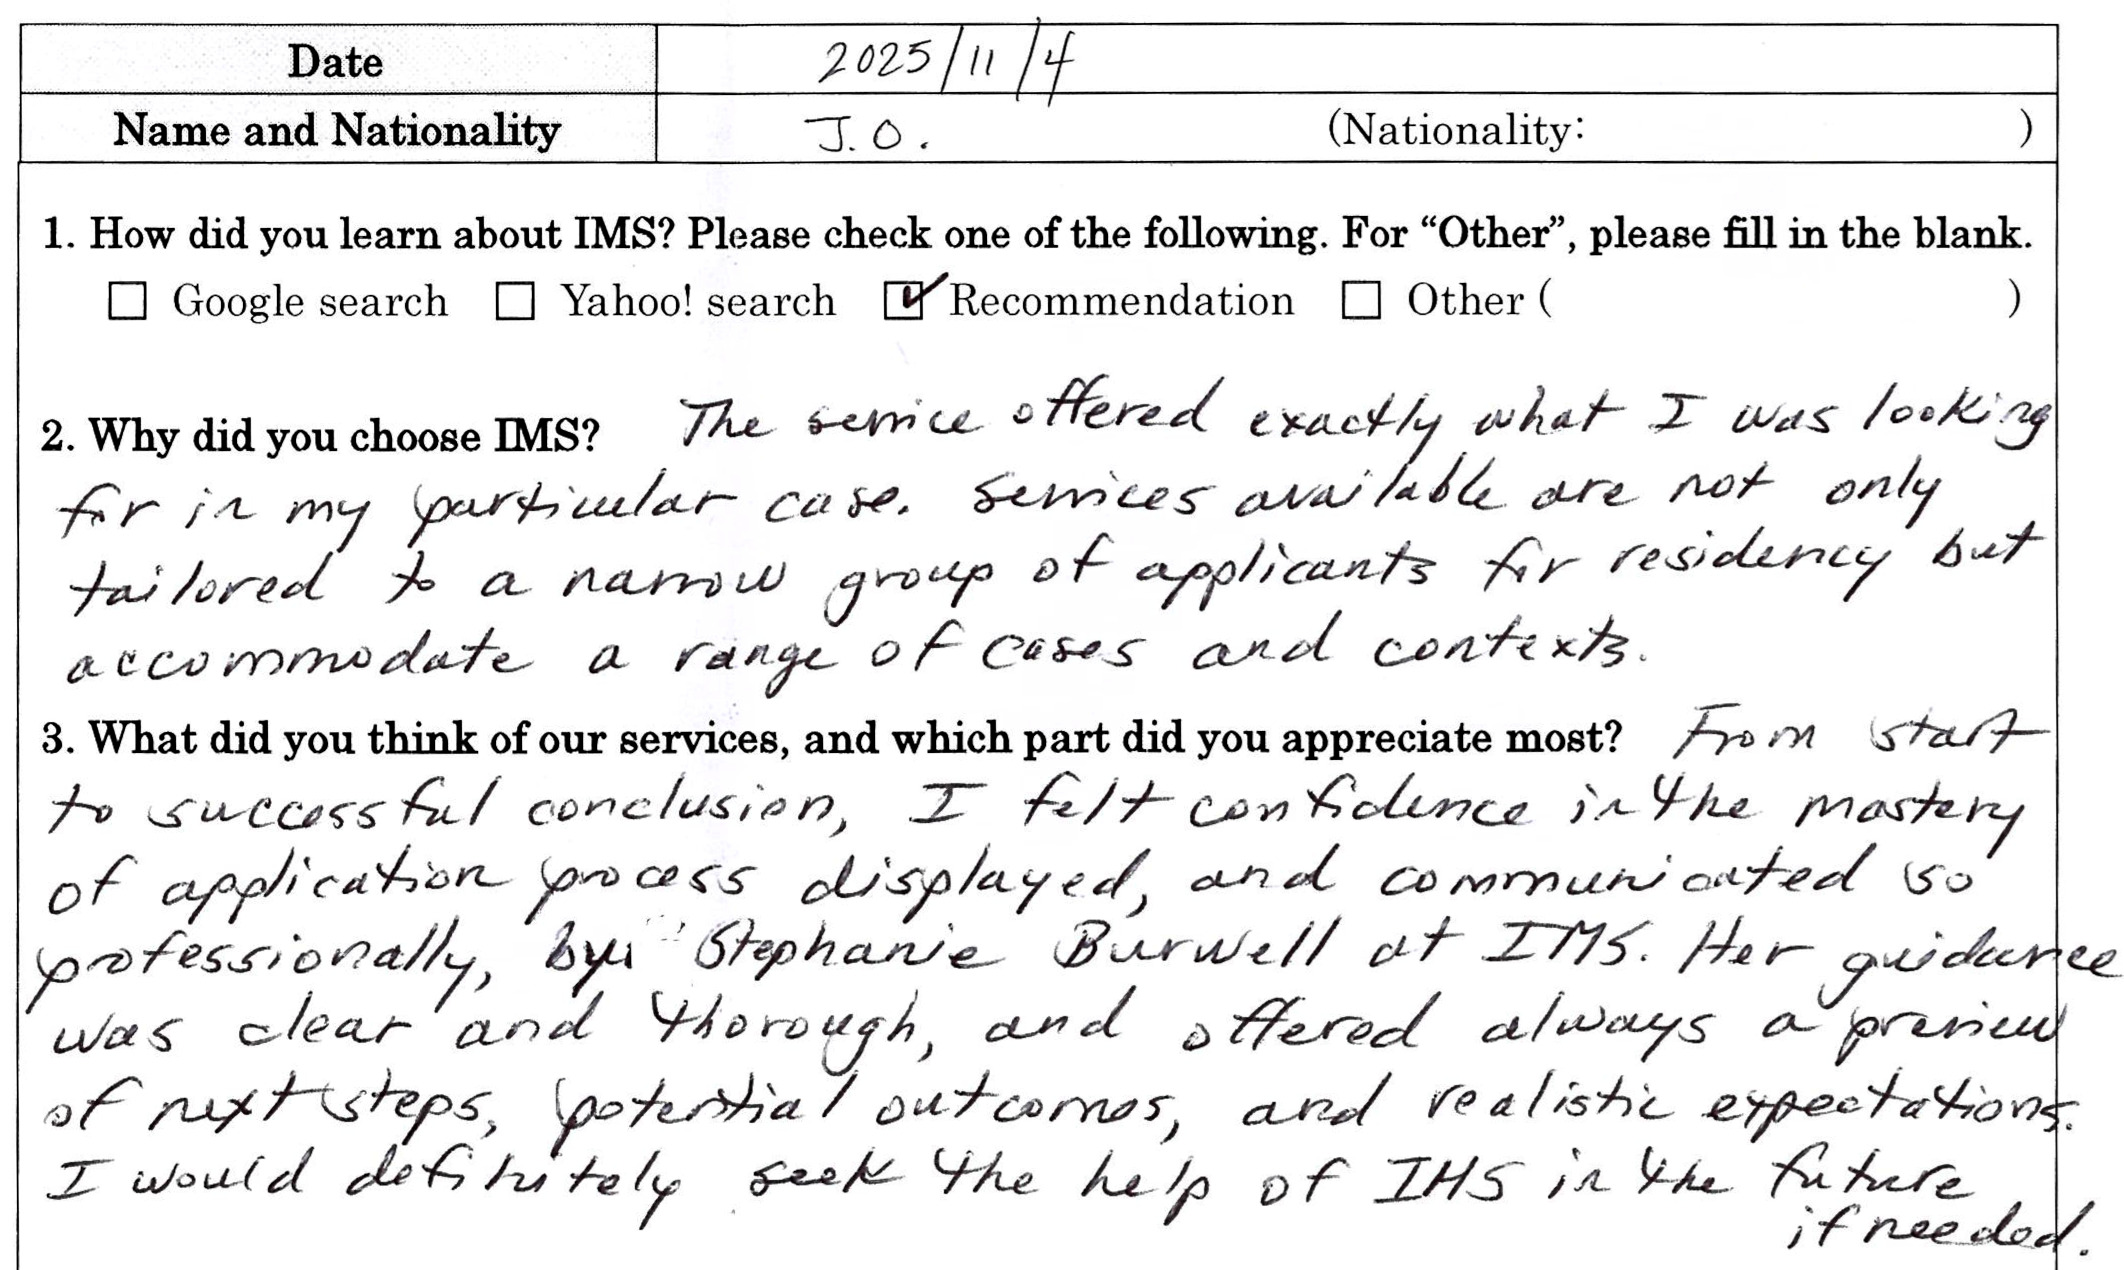 Date 2025/11/4
Name and Nationality J.O. (Nationality: )
1. How did you learn about IMS? Please check one of the following. For “Other”, please fill in the blank.
☐ Google search ☐ Yahoo! search ☑ Recommendation ☐ Other ( )
2. Why did you choose IMS? The service offered exactly what I was looking
for in my particular case. Services available are not only
tailored to a narrow group of applicants for residency but
accommodate a range of cases and contexts.
3. What did you think of our services, and which part did you appreciate most? From start
to successful conclusion, I felt confidence in the mastery
of application process displayed, and communicated so
professionally, by Stephanie Burwell at IMS. Her guidance
was clear and thorough, and offered always a preview
of next steps, potential outcomes, and realistic expectations.
I would definitely seek the help of IMS in the future
if needed.